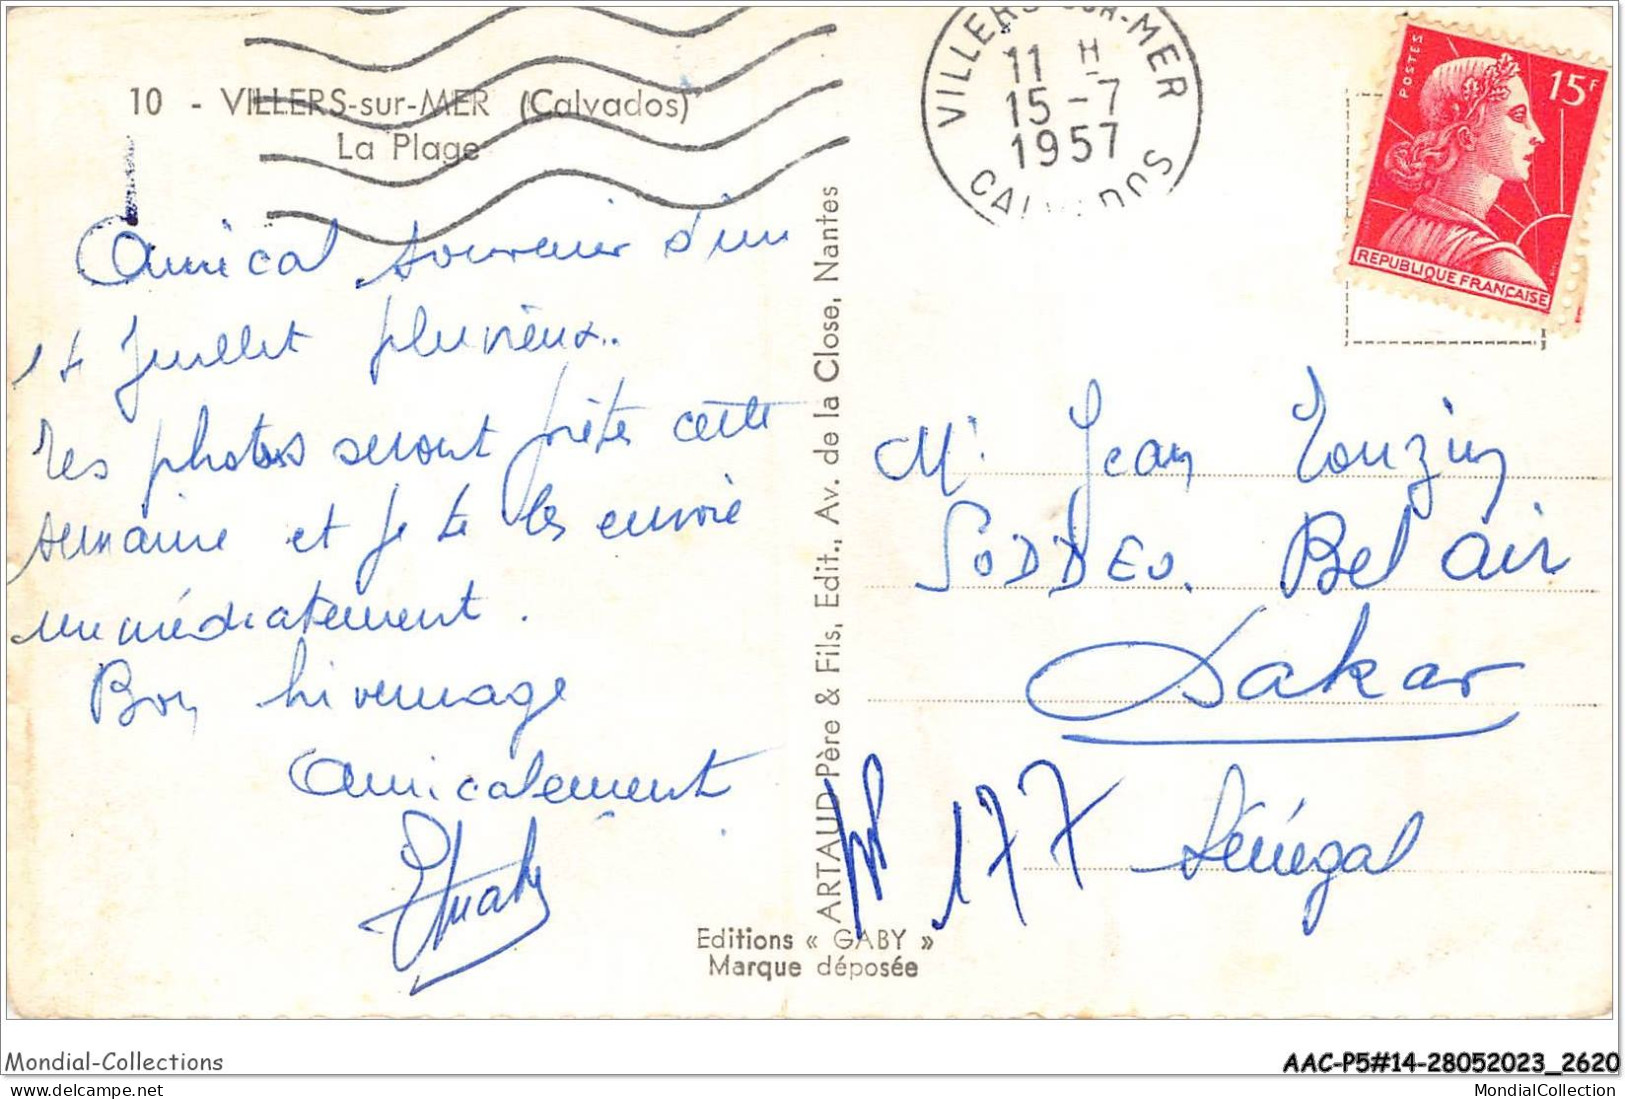 10 - VILLERS-sur-MER (Calvados)
La Plage
Amical souvenir d'un
14 Juillet pluvieux..
Tes photos seront prêtes cette
semaine et je te les envoie
immédiatement.
Bon hivernage
Amicalement
ARTAUD Père & Fils, Edit., Av. de la Close, Nantes
Editions « GABY »
Marque déposée
VILLERS-SUR-MER
11 H
15-7
1957
CALVADOS
POSTES
15F
REPUBLIQUE FRANÇAISE
Mr Jean Touzin
SODDEO. Bel Air
Dakar
177 Sénégal
Mondial-Collections
AAC-P5#14-28052023_2620
www.delcampe.net
MondialCollection